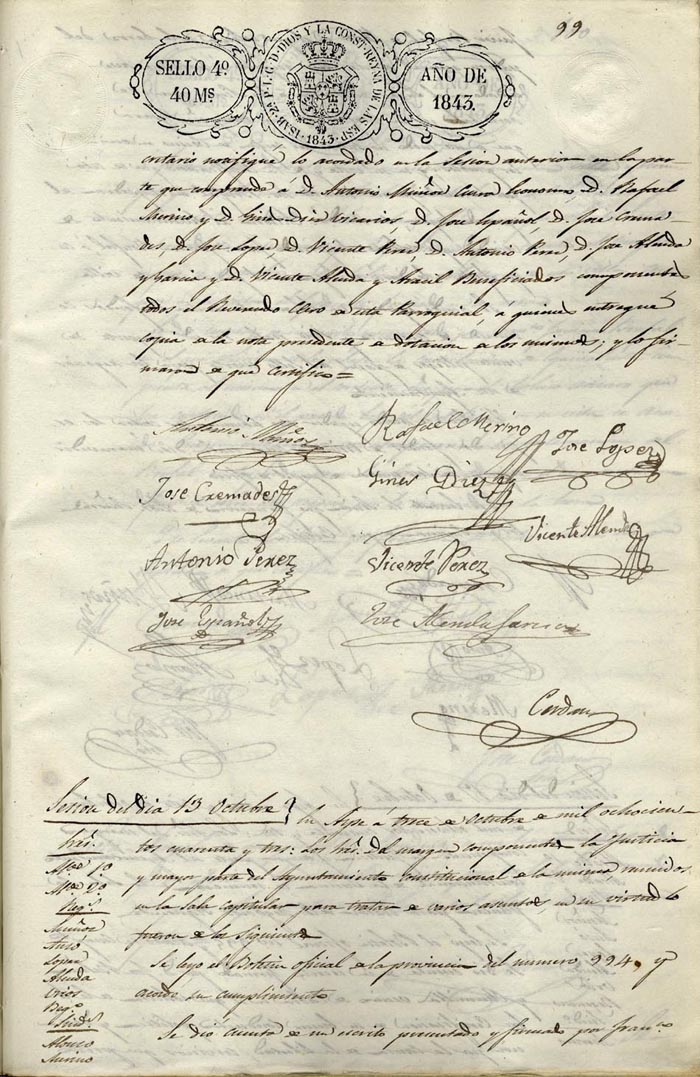 99
SELLO 4º
40 Mˢ
ISAB. 2ª P. L. G. D. DIOS Y LA CONST. REYNA DE LAS ESP.
1843
AÑO DE
1843.
notifiqué lo acordado en la Sesion anterior en la par-
te que comprende á D. Antonio Muñoz Cura Economo, D. Rafael
Merino y D. Gines Diez Vicarios, D. Jose Español, D. Jose Crema-
des, D. Jose Lopez, D. Vicente Perez, D. Antonio Perez, D. Jose Alenda
y Garcia y D. Vicente Alenda y Beneficiados componentes
todos el Reverendo Clero de esta Parroquial, á quienes entregué
copia de la nota precedente de dotacion de los mismos; y lo fir-
maron de que Certifico=
Antonio Muñoz
Rafael Merino
Jose Lopez
Jose Cremades
Gines Diez
Vicente Alenda
Antonio Perez
Vicente Perez
Jose Español
Jose Alenda Garcia
Cerdan
Sesion del dia 13 Octubre
En Aspe á trece de Octubre de mil ochocien-
tos cuarenta y tres: Los Sres. del margen componentes la Justicia
y mayor parte del Ayuntamiento Constitucional de la misma reunidos
en la Sala Capitular para tratar de varios asuntos, en su virtud lo
fueron de los Siguientes
Se leyo el Boletin oficial de la provincia del numero 994, y
acordó su cumplimiento
Se dió cuenta de un escrito presentado y firmado por Franᶜᵒ
Sres.
Alcᵉ 1º
Alcᵉ 2º
Regˢ
Muñoz
Lopez
Alenda
Sindˢ
Alonso
Merino